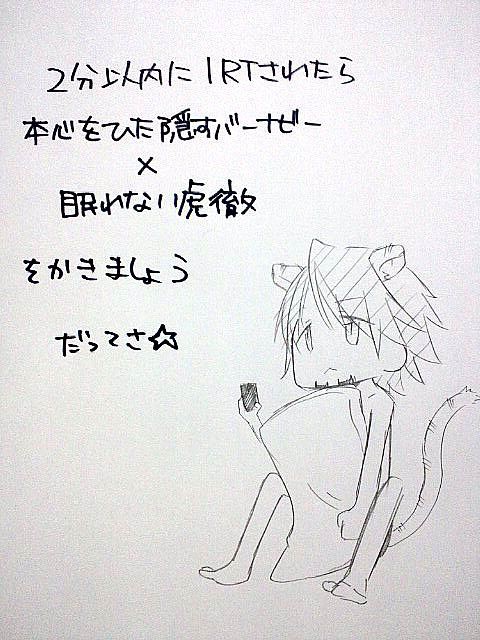 2分以内に1RTされたら
本心をひた隠すバーナビー
×
眠れない虎徹
をかきましょう
だってさ☆